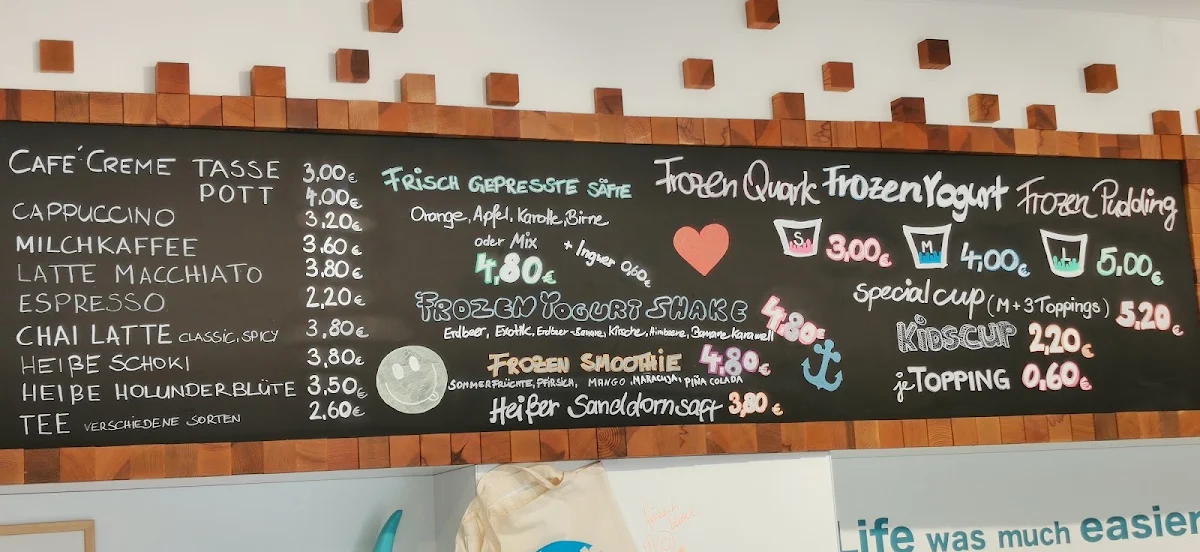 CAFÉ CREME TASSE 3,00€
POTT 4,00€
CAPPUCCINO 3,20€
MILCHKAFFEE 3,60€
LATTE MACCHIATO 3,80€
ESPRESSO 2,20€
CHAI LATTE CLASSIC, SPICY 3,80€
HEIßE SCHOKI 3,80€
HEIßE HOLUNDERBLÜTE 3,50€
TEE VERSCHIEDENE SORTEN 2,60€
FRISCH GEPRESSTE SÄFTE
Orange, Apfel, Karotte, Birne
oder Mix + Ingwer 0,60€
4,80€
FROZEN YOGURT SHAKE 4,80€
Erdbeer, Exotik, Erdbeer-Banane, Kirsche, Himbeere, Banane Karamell
FROZEN SMOOTHIE 4,80€
SOMMERFRÜCHTE, PFIRSICH, MANGO, MARACUJA, PIÑA COLADA
Heißer Sanddornsaft 3,80€
Frozen Quark Frozen Yogurt Frozen Pudding
S 3,00€ M 4,00€ L 5,00€
special cup (M + 3 Toppings) 5,20€
KIDSCUP 2,20€
je TOPPING 0,60€
Life was much easier